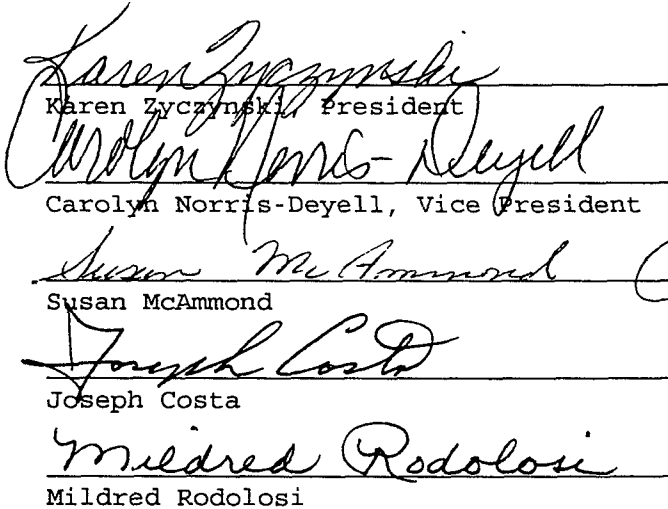 Karen Zyczynski
Karen Zyczynski, President
Carolyn Norris-Deyell
Carolyn Norris-Deyell, Vice President
Susan McAmmond
Susan McAmmond
Joseph Costa
Joseph Costa
Mildred Rodolosi
Mildred Rodolosi